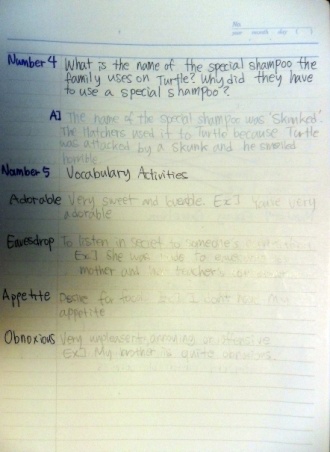 No.
Number 4 What is the name of the special shampoo the
family uses on Turtle? Why did they have
to use a special shampoo?
A] The name of the special shampoo was 'Skunked'.
The Hatchers used it to Turtle because Turtle
was attacked by a skunk and he smelled
horrible.
Number 5 Vocabulary Activities
Adorable Very sweet and lovable. Ex] You're very
adorable
Eavesdrop To listen in secret to someone's
Ex] She was to
mother and the teacher's
Appetite Desire for food. I don't have
appetite
Obnoxious Very unpleasant, annoying or offensive
Ex] My mother is quite obnoxious.